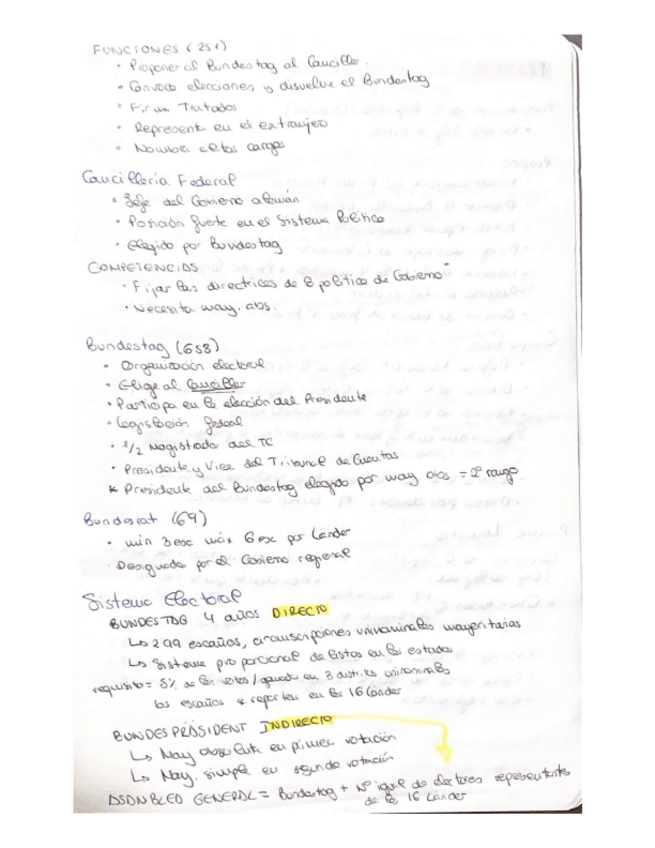 FUNCIONES (251)
• Proponer al Bundestag al Canciller.
• Convoca elecciones y disuelve el Bundestag
• Firma Tratados
• Representa en el extranjero
• Nombra altos cargos
Cancillería Federal
• Jefe del Gobierno alemán
• Posición fuerte en el Sistema Político
• Elegido por Bundestag
COMPETENCIAS
• Fijar las directrices de la política de Gobierno
• Necesita may. abs.
Bundestag (658)
• Organización electoral
• Elige al Canciller
• Participa en la elección del Presidente
• Legislación federal
• 1/2 Magistrados del TC
• Presidente y Vice del Tribunal de Cuentas
* Presidente del Bundestag elegido por may abs = 2º rango
Bundesrat (69)
• min 3 esc máx 6 esc por Länder
• Designados por el Gobierno regional
Sistema Electoral
BUNDESTAG 4 años DIRECTO
↳ 299 escaños, circunscripciones uninominales mayoritarias
↳ Sistema proporcional de listas en los estados
requisito = 5% de los votos / ganado en 3 distritos uninominales
los escaños se reparten en los 16 Länder
BUNDESPRÄSIDENT INDIRECTO
↳ May absoluta en primera votación
↳ May. simple en segunda votación
ASAMBLEA GENERAL = Bundestag + Nº igual de electores representantes
de los 16 Länder